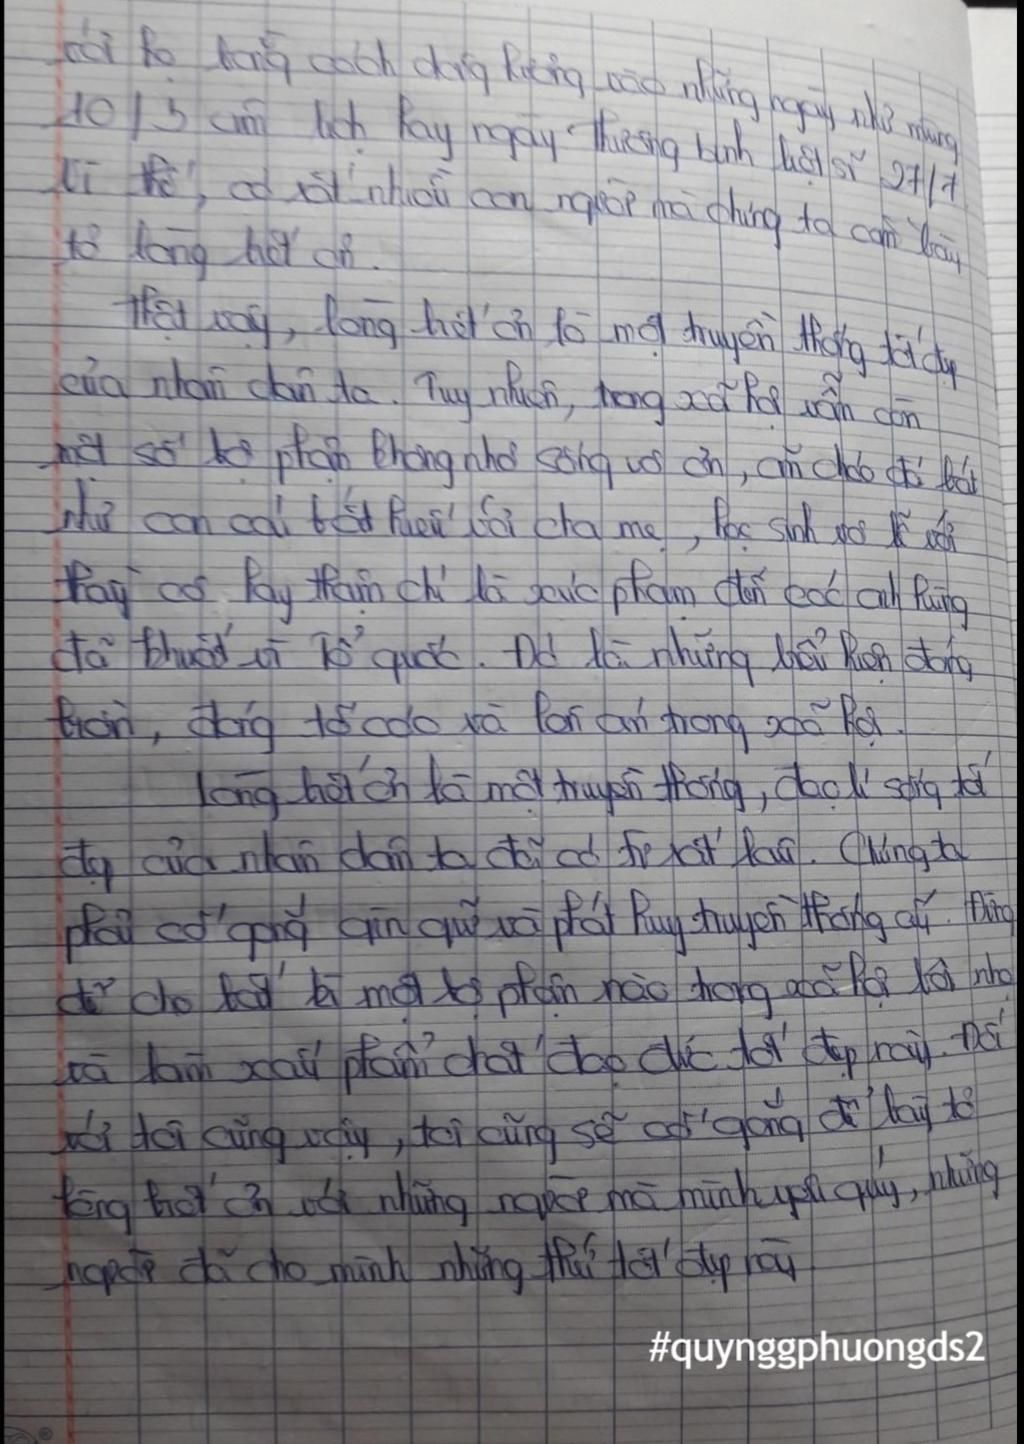 với họ bằng cách dâng hương vào những ngày như mùng
10/3 âm lịch hay ngày thương binh liệt sĩ 27/7
Vì thế, có rất nhiều con người mà chúng ta cần bày
tỏ lòng biết ơn.
Thật vậy, lòng biết ơn là một truyền thống tốt đẹp
của nhân dân ta. Tuy nhiên, trong xã hội vẫn còn
một số bộ phận không nhỏ sống vô ơn, cháo đá bát
như con cái bất hiếu với cha mẹ, học sinh vô lễ với
thầy cô hay thậm chí là xúc phạm đến các anh hùng
đã khuất vì Tổ quốc. Đó là những biểu hiện đáng
buồn, đáng tố cáo và lên án trong xã hội.
Lòng biết ơn là một truyền thống, đạo lí sống tốt
đẹp của nhân dân ta đã có từ rất lâu. Chúng ta
phải cố gắng gìn giữ và phát huy truyền thống ấy. Đừng
để cho bất kì một bộ phận nào trong xã hội bôi nhọ
và làm xấu phẩm chất đạo đức tốt đẹp này. Đối
với tôi cũng vậy, tôi cũng sẽ cố gắng để bày tỏ
lòng biết ơn với những người mà mình yêu quý, những
người đã cho mình những thứ tốt đẹp này
#quynggphuongds2